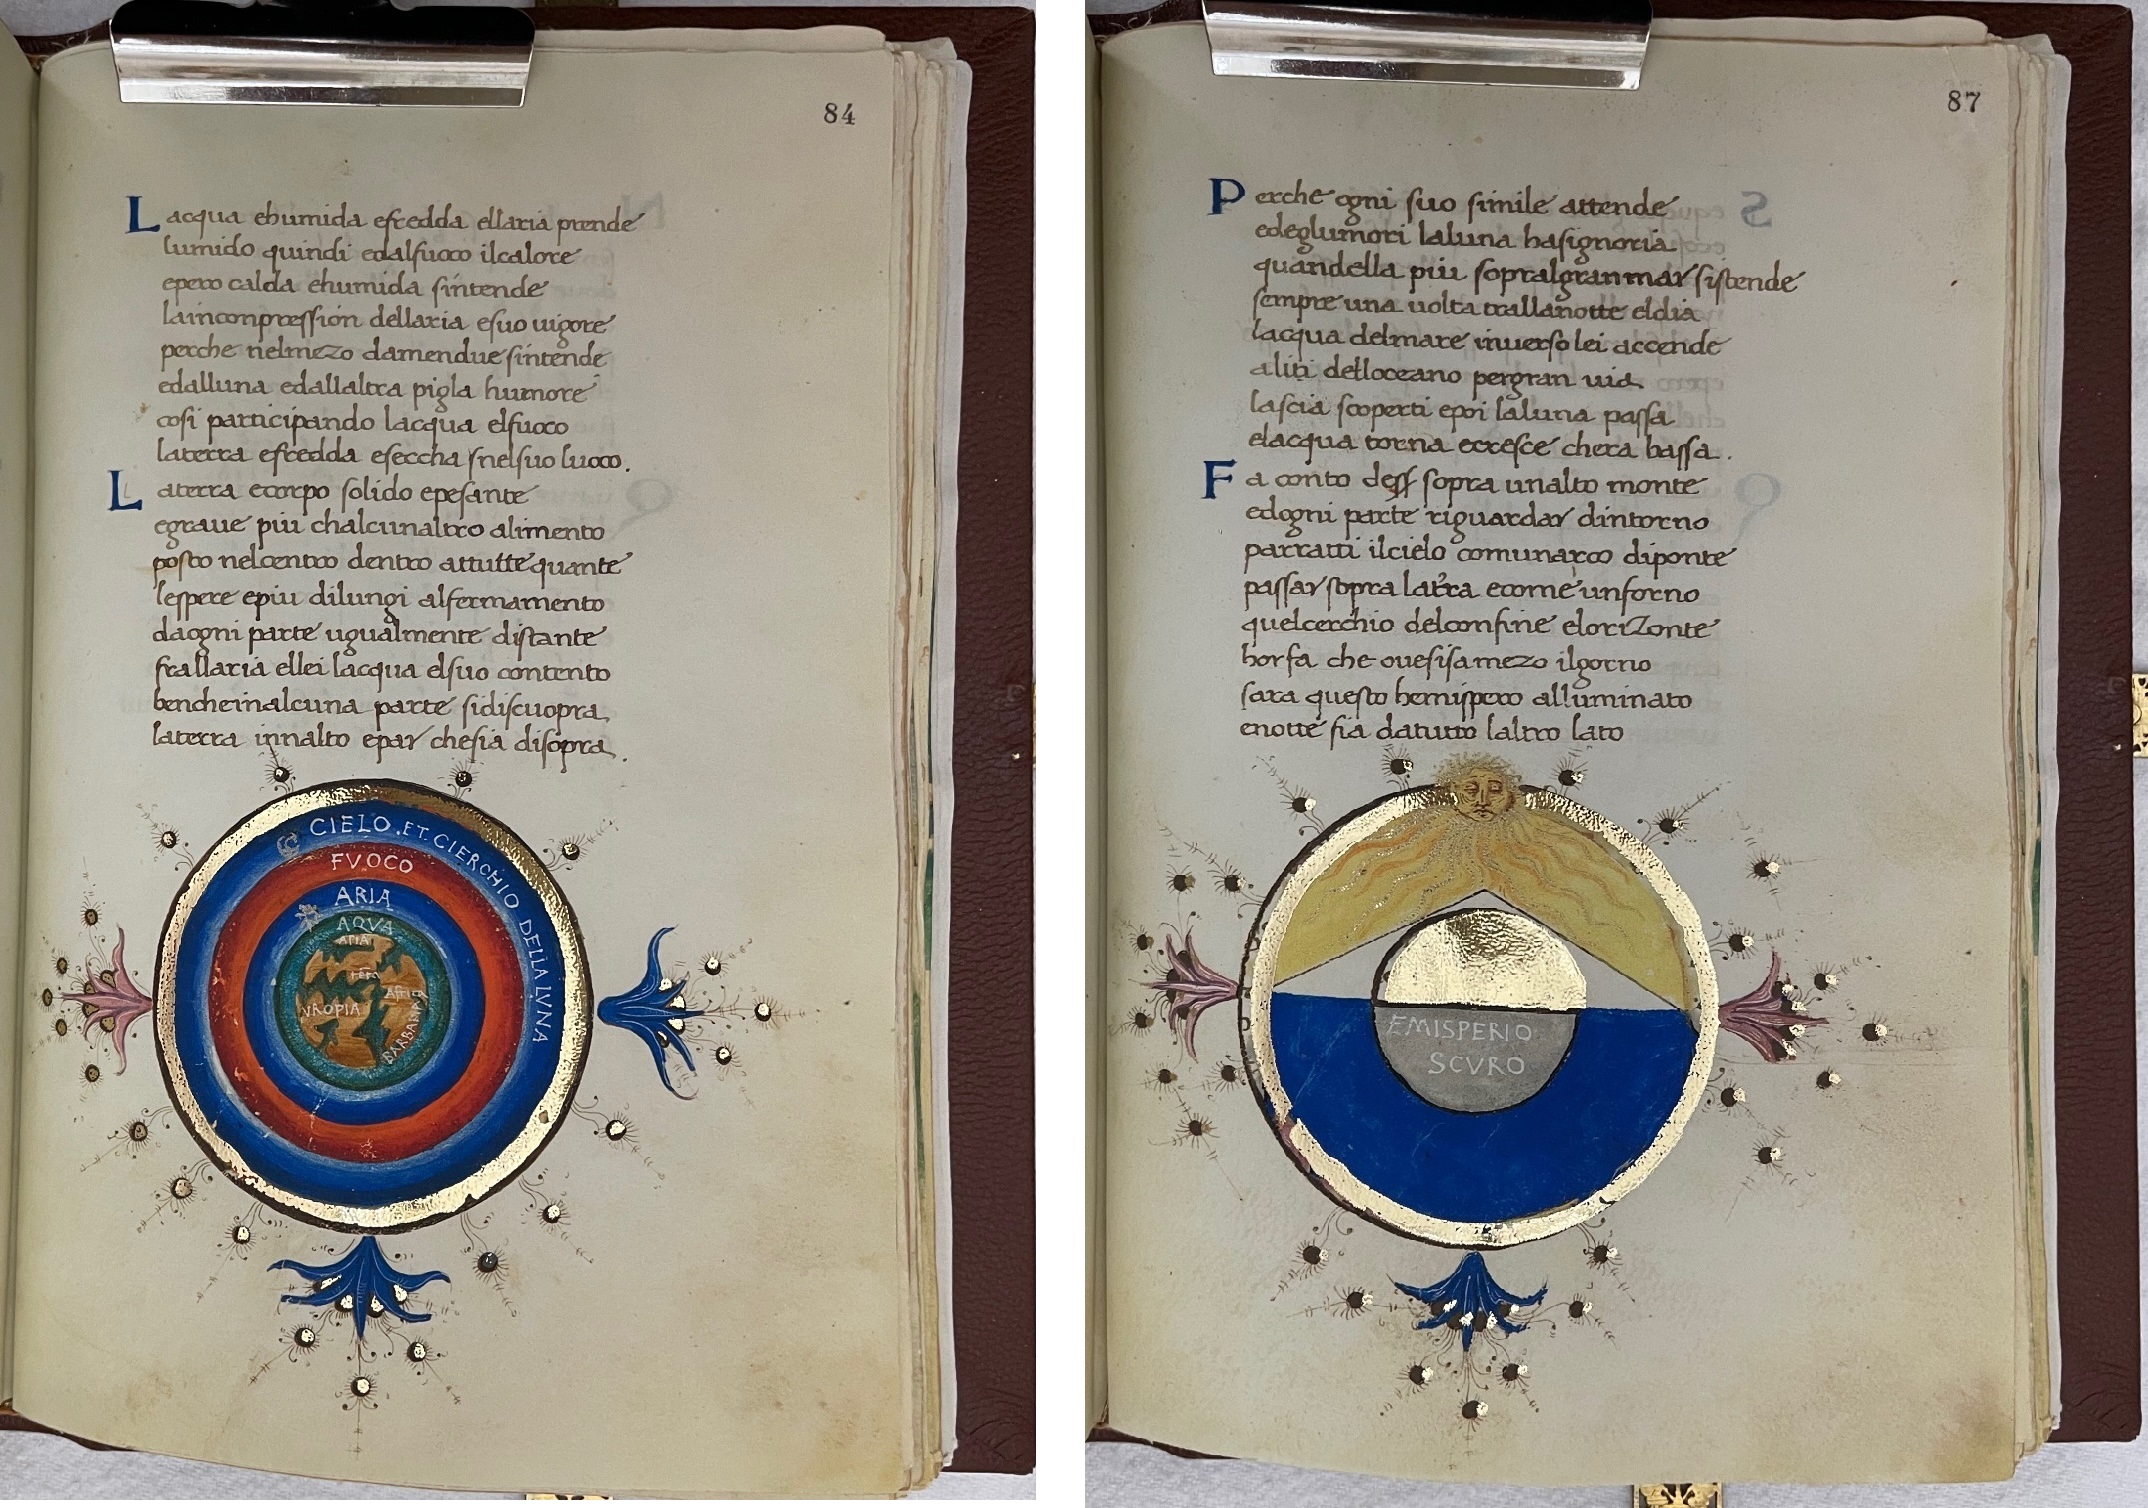 84
Lacqua ehumida efredda ellaria prende
lumido quindi edalfuoco ilcalore
epero calda ehumida sintende
lainconpression dellaria esuo uigore
perche nelmezo damendue sintende
edalluna edallaltra pigla humore
cosi participando lacqua elfuoco
laterra efredda eseccha snelsuo luoco.
Laterra ecorpo solido epesante
egraue piu chalcunaltro alimento
posto nelcentro dentro attutte quante
lespere epiu dilungi alfermamento
daogni parte ugualmente distante
frallaria ellei lacqua elsuo contento
bencheinalcuna parte sidiscuopra
laterra innalto epar chesia disopra.
CIELO. ET CIERCHIO DELLA LVNA
FVOCO
ARIA
AQVA
ASIA
terra
Africa
VROPIA
BARBARIA
87
Perche ogni suo simile attende
edeglumori laluna hasignoria
quandella piu sopralgranmar sistende
sempre una uolta trallanotte eldia
lacqua delmare inuerso lei accende
aliti delloceano pergran uia
lascia scoperti epoi laluna passa
elacqua torna eccresce chera bassa.
Fa conto desser sopra unalto monte
edogni parte riguardar dintorno
parratti ilcielo comunarco diponte
passar sopra laterra ecome unforno
quelcerchio delconfine elorizonte
hor fa che ouesisa mezo ilgorno
sara questo hemispero alluminato
enotte fia datutto laltro lato
EMISPERIO
SCVRO